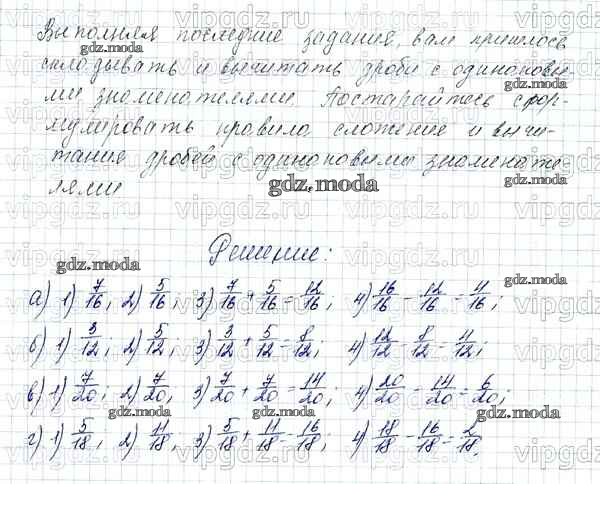 Выполняя последние задания, вам пришлось
складывать и вычитать дроби с одинаковы-
ми знаменателями. Постарайтесь сфор-
мулировать правила сложение и вычи-
тания дробей с одинаковыми знаменате-
лями
gdz.moda
Решение:
а) 1) 7/16; 2) 5/16; 3) 7/16 + 5/16 = 12/16; 4) 16/16 - 12/16 = 4/16;
б) 1) 3/12; 2) 5/12; 3) 3/12 + 5/12 = 8/12; 4) 12/12 - 8/12 = 4/12;
в) 1) 7/20; 2) 7/20; 3) 7/20 + 7/20 = 14/20; 4) 20/20 - 14/20 = 6/20;
г) 1) 5/18; 2) 11/18, 3) 5/18 + 11/18 = 16/18; 4) 18/18 - 16/18 = 2/18.
vipgdz.ru